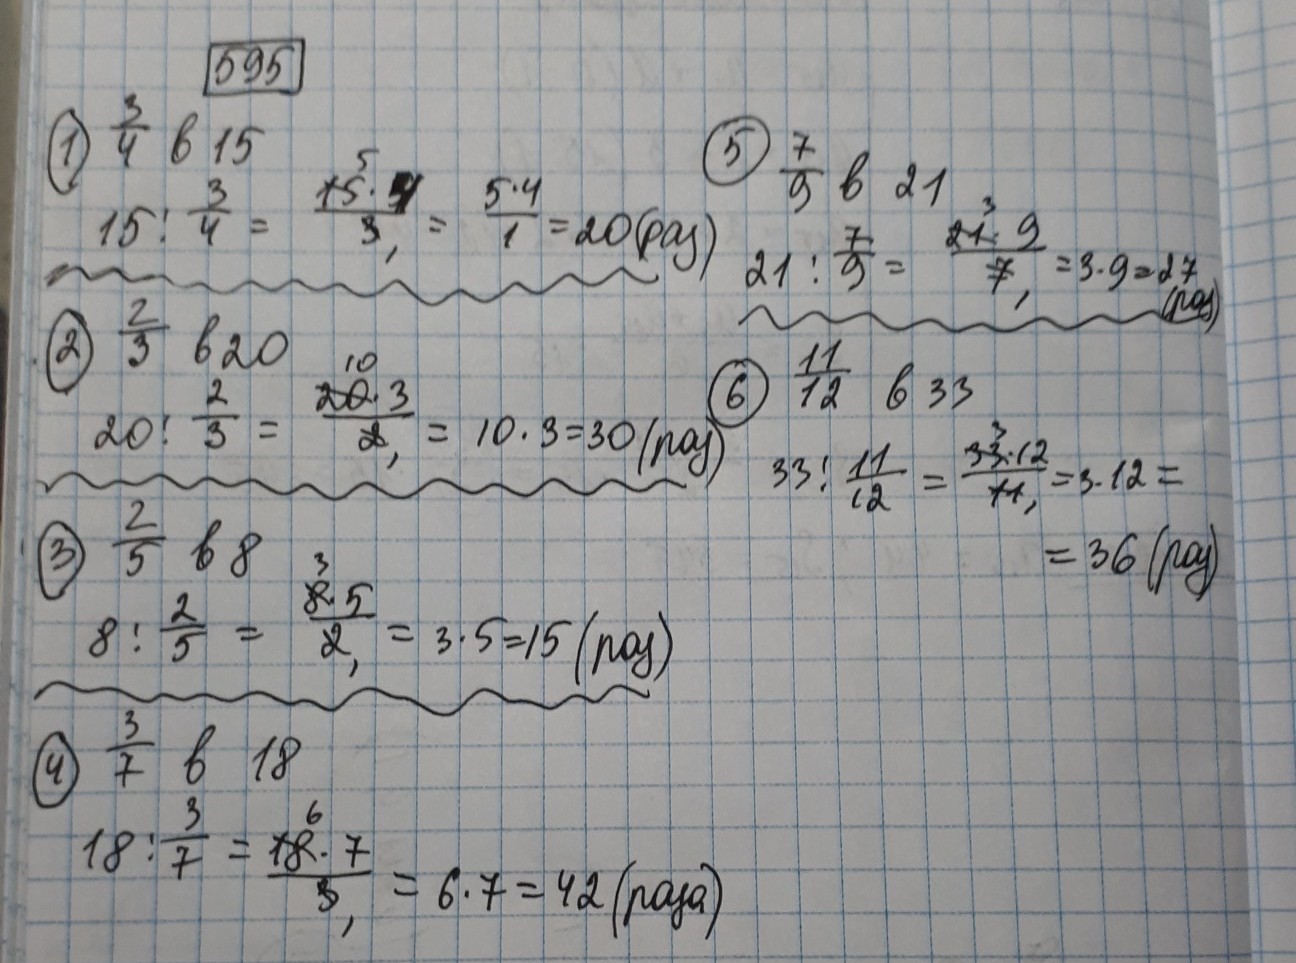 595
① 3/4 в 15
15 : 3/4 = (15 5 · 4)/(3 1) = (5·4)/1 = 20 (раз)
② 2/3 в 20
20 : 2/3 = (20 10 · 3)/(2 1) = 10 · 3 = 30 (раз)
③ 2/5 в 8
8 : 2/5 = (8 3 · 5)/(2 1) = 3 · 5 = 15 (раз)
④ 3/7 в 18
18 : 3/7 = (18 6 · 7)/(3 1) = 6 · 7 = 42 (раза)
⑤ 7/9 в 21
21 : 7/9 = (21 3 · 9)/(7 1) = 3 · 9 = 27
(раз)
⑥ 11/12 в 33
33 : 11/12 = (33 3 · 12)/(11 1) = 3 · 12 =
= 36 (раз)